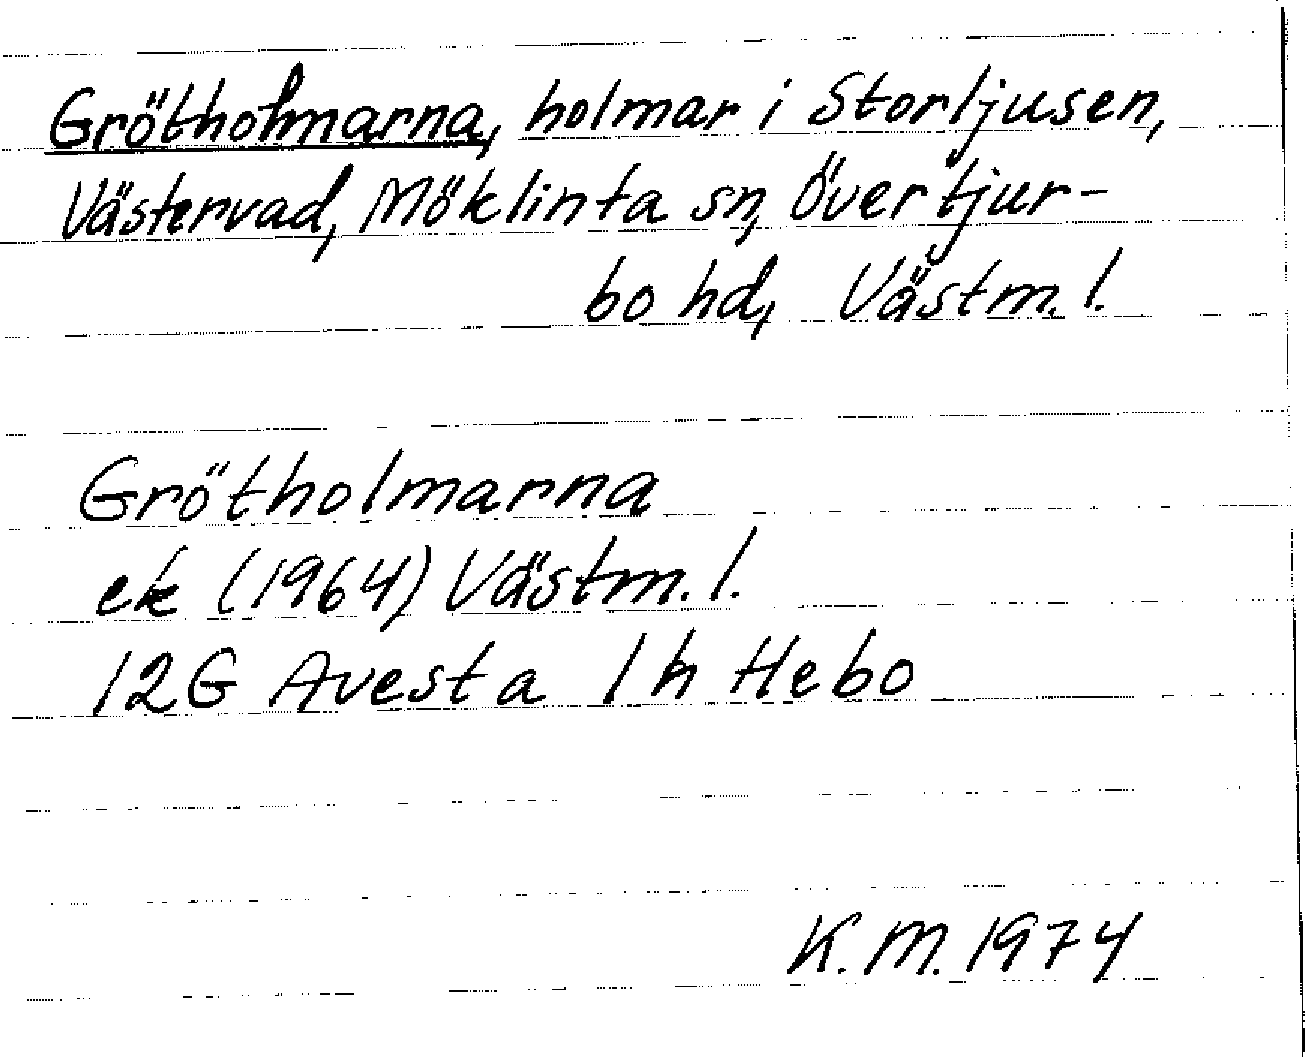 Grötholmarna, holmar i Storljusen,
Västervad, Möklinta sn, Övertjur-
bo hd, Västm. l.
Grötholmarna
ek (1964) Västm. l.
12G Avesta 1h Hebo
K. M. 1974